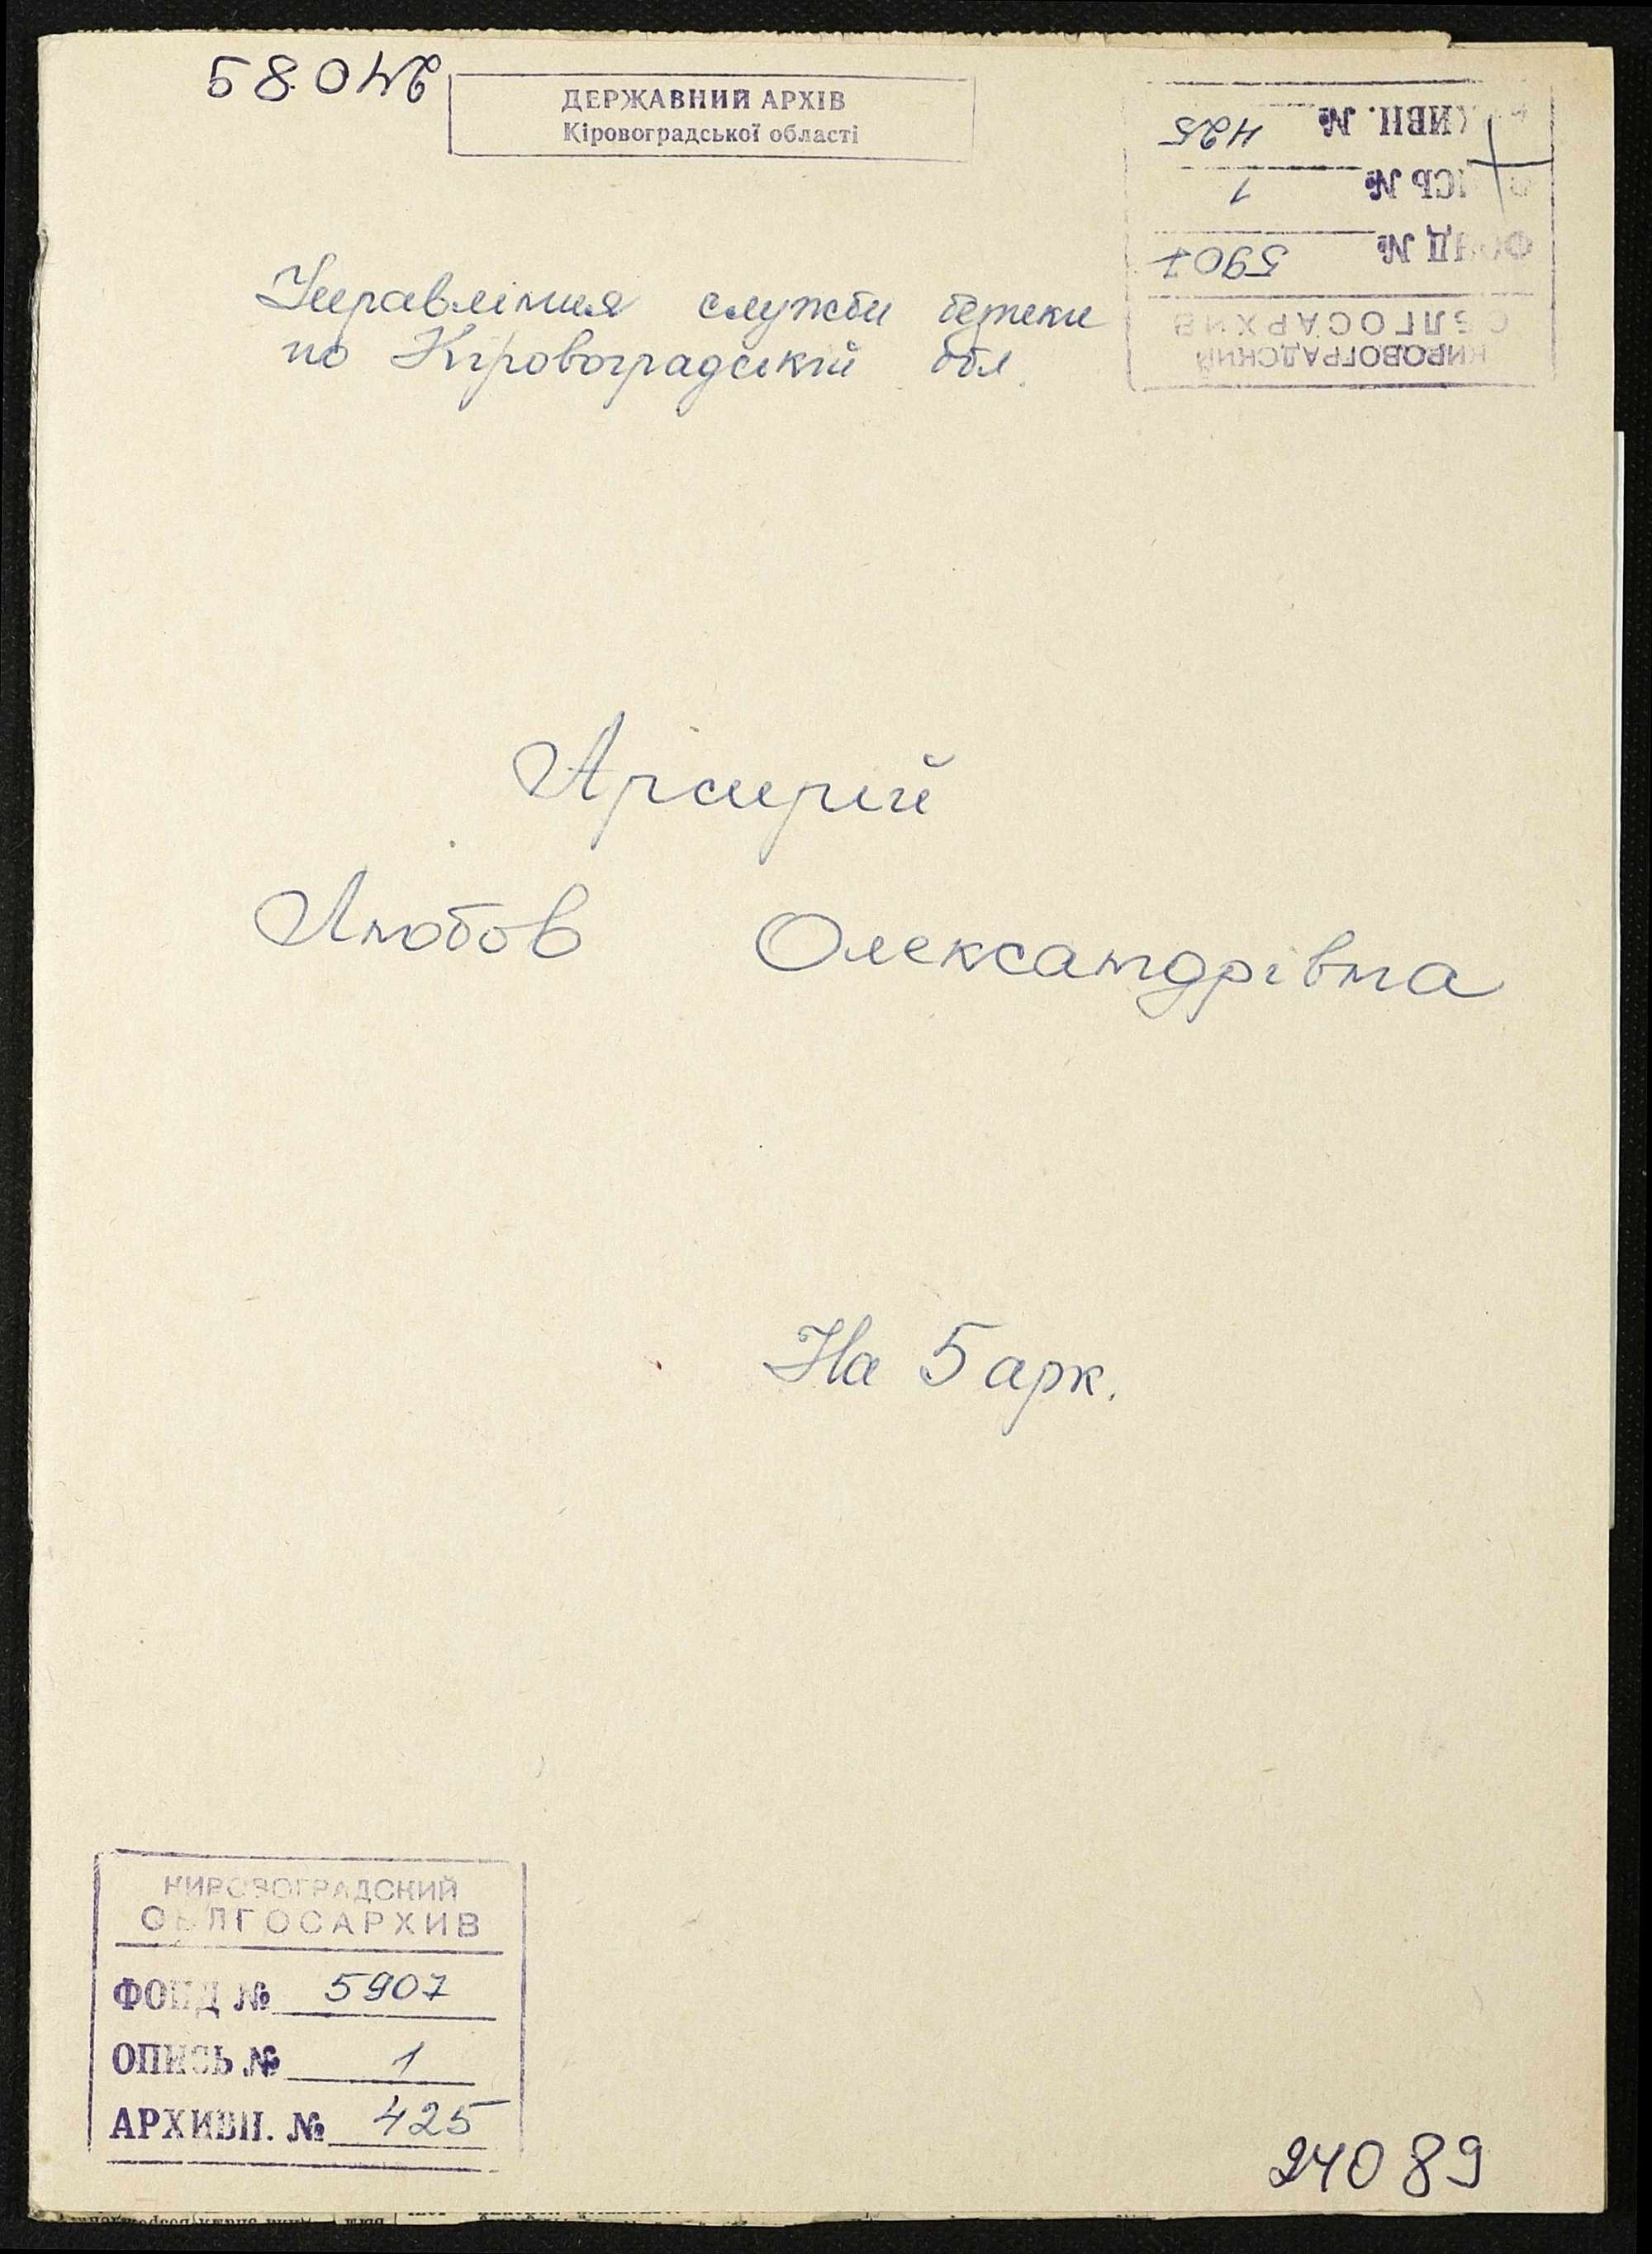 24089
ДЕРЖАВНИЙ АРХІВ
Кіровоградської області
КИРОВОГРАДСКИЙ
ОБЛГОСАРХИВ
ФОНД № 5907
ОПИСЬ № 1
АРХИВН. № 425
Управління служби безпеки
по Кіровоградській обл.
Арсирій
Любов Олександрівна
На 5 арк.
КИРОВОГРАДСКИЙ
ОБЛГОСАРХИВ
ФОНД № 5907
ОПИСЬ № 1
АРХИВН. № 425
24089